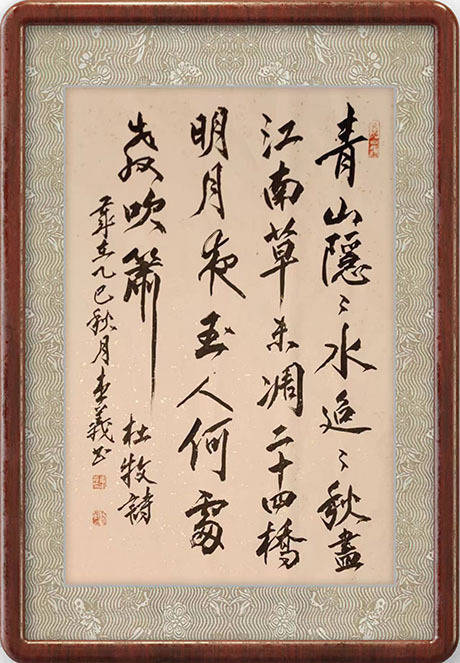 青山隱〻水迢〻秋盡
江南草未凋二十四橋
明月夜玉人何處
教吹簫
杜牧詩
歲在乙巳秋月李義书